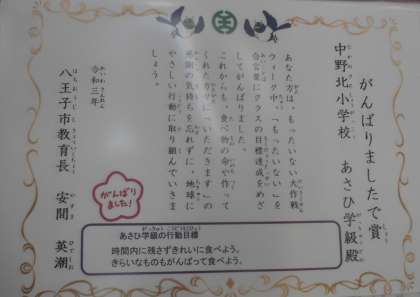 がんばりましたで賞
中野北小学校　あさひ学級殿
あなた方は、もったいない大作戦
ウィーク中、「もったいない」を
合言葉にクラスの目標達成をめざ
してがんばりました。
これからも、食べ物の命や作って
くれた方々に「いただきます」の
感謝の気持ちを忘れずに、地球に
やさしい行動に取り組んでいきま
しょう。
令和三年
八王子市教育長　安間　英潮
がんばり
ました！
あさひ学級の行動目標
時間内に残さずきれいに食べよう。
きらいなものもがんばって食べよう。